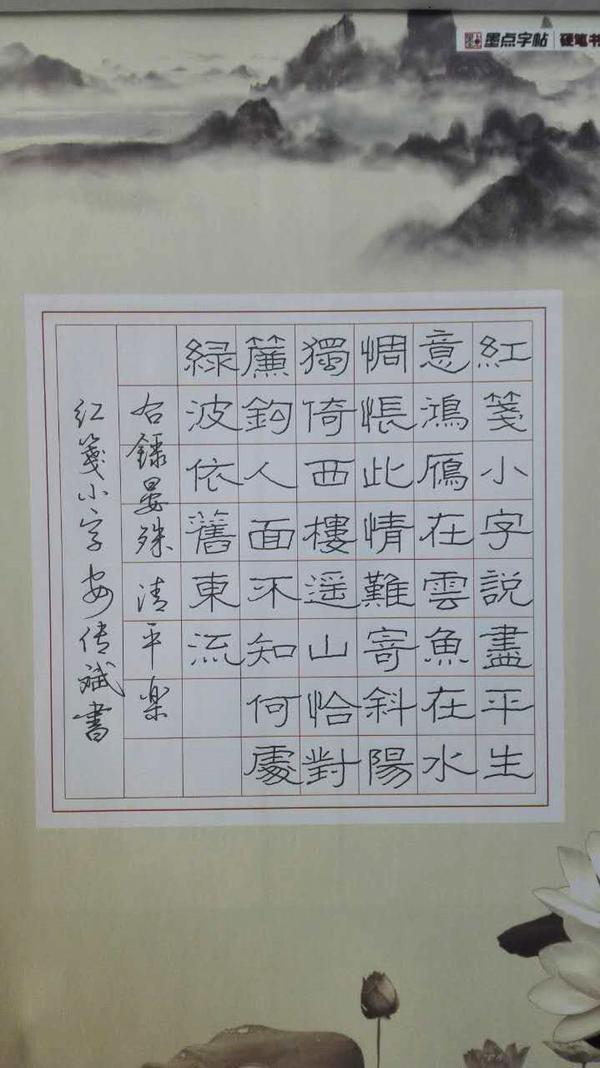 墨点字帖 硬笔书
紅箋小字説盡平生
意鴻鴈在雲魚在水
惆悵此情難寄斜陽
獨倚西樓遥山恰對
簾鈎人面不知何處
緑波依舊東流
右録晏殊清平樂
红箋小字安传斌書